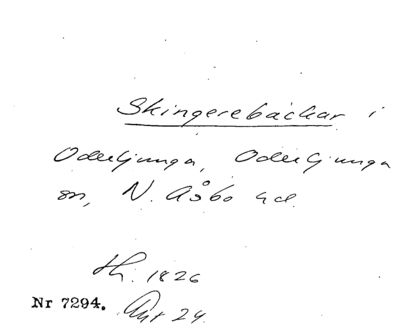 Skingerebäckar i
Oderljunga, Oderljunga
sn, N. Åsbo hd.
Lh. 1826
Nr 7294. Akt 24.